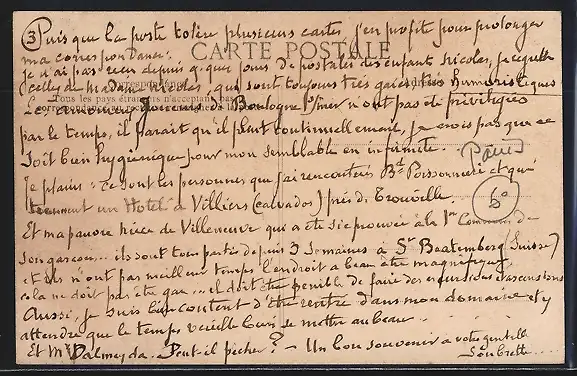 ③ Puis que la poste tolère plusieurs cartes, j'en profite pour prolonger
ma correspondance.
CARTE POSTALE
je n'ai pas reçu depuis q. que jours de postales des enfants Nicolas, je reçu
celles de Madame Nicolas, qui sont toujours très gaies très humoristiques
Tous les pays étrangers n'acceptent pas
Correspondance
Les Personnes de Boulogne s/mer n'ont pas de privilèges
par le temps, il paraît qu'il pleut continuellement, je crois pas que ce
soit bien hygiénique pour mon semblable en infirmité.
Je plains : ce sont les personnes que j'ai rencontrées Bd Poissonnière et qui
tiennent un Hotel à Villiers (calvados) près de Trouville.
Pâures
Et ma pauvre nièce de Villeneuve qui a été si éprouvée à la 1re Commun. de
son garçon... ils sont tous partis depuis 3 semaines à St Beatemberg (Suisse)
et ils n'ont pas meilleur temps l'endroit a beau être magnifique,
cela ne doit pas être gai... il doit être pénible de faire des excursions d'ascensions
Aussi, je suis bien content d'être rentré dans mon domaine et y
attendre que le temps veuille bien se mettre au beau...
Et Mr Dalmeyda. Peut-il pêcher ? — Un bon souvenir à votre gentille
Soubrette....